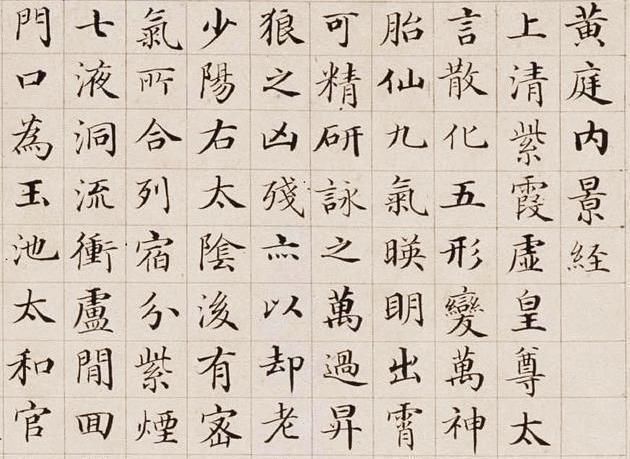 黃庭内景経
上清紫霞虛皇尊太
言散化五形變萬神
胎仙九氣映明出霄
可精研詠之萬過昇
狼之凶殘亦以却老
少陽右太陰後有密
氣所合列宿分紫煙
七液洞流衝盧間回
門口為玉池太和官